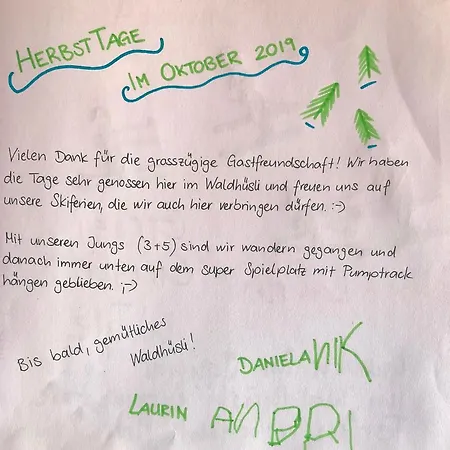 HERBSTTAGE
IM OKTOBER 2019
Vielen Dank für die grasszügige Gastfreundschaft! Wir haben
die Tage sehr genossen hier im Waldhüsli und freuen uns auf
unsere Skiferien, die wir auch hier verbringen dürfen. :-)
Mit unseren Jungs (3+5) sind wir wandern gegangen und
danach immer unten auf dem super Spielplatz mit Pumptrack
hängen geblieben. ;-)
Bis bald, gemütliches
Waldhüsli!
DANIELA NIK
LAURIN ANDRI